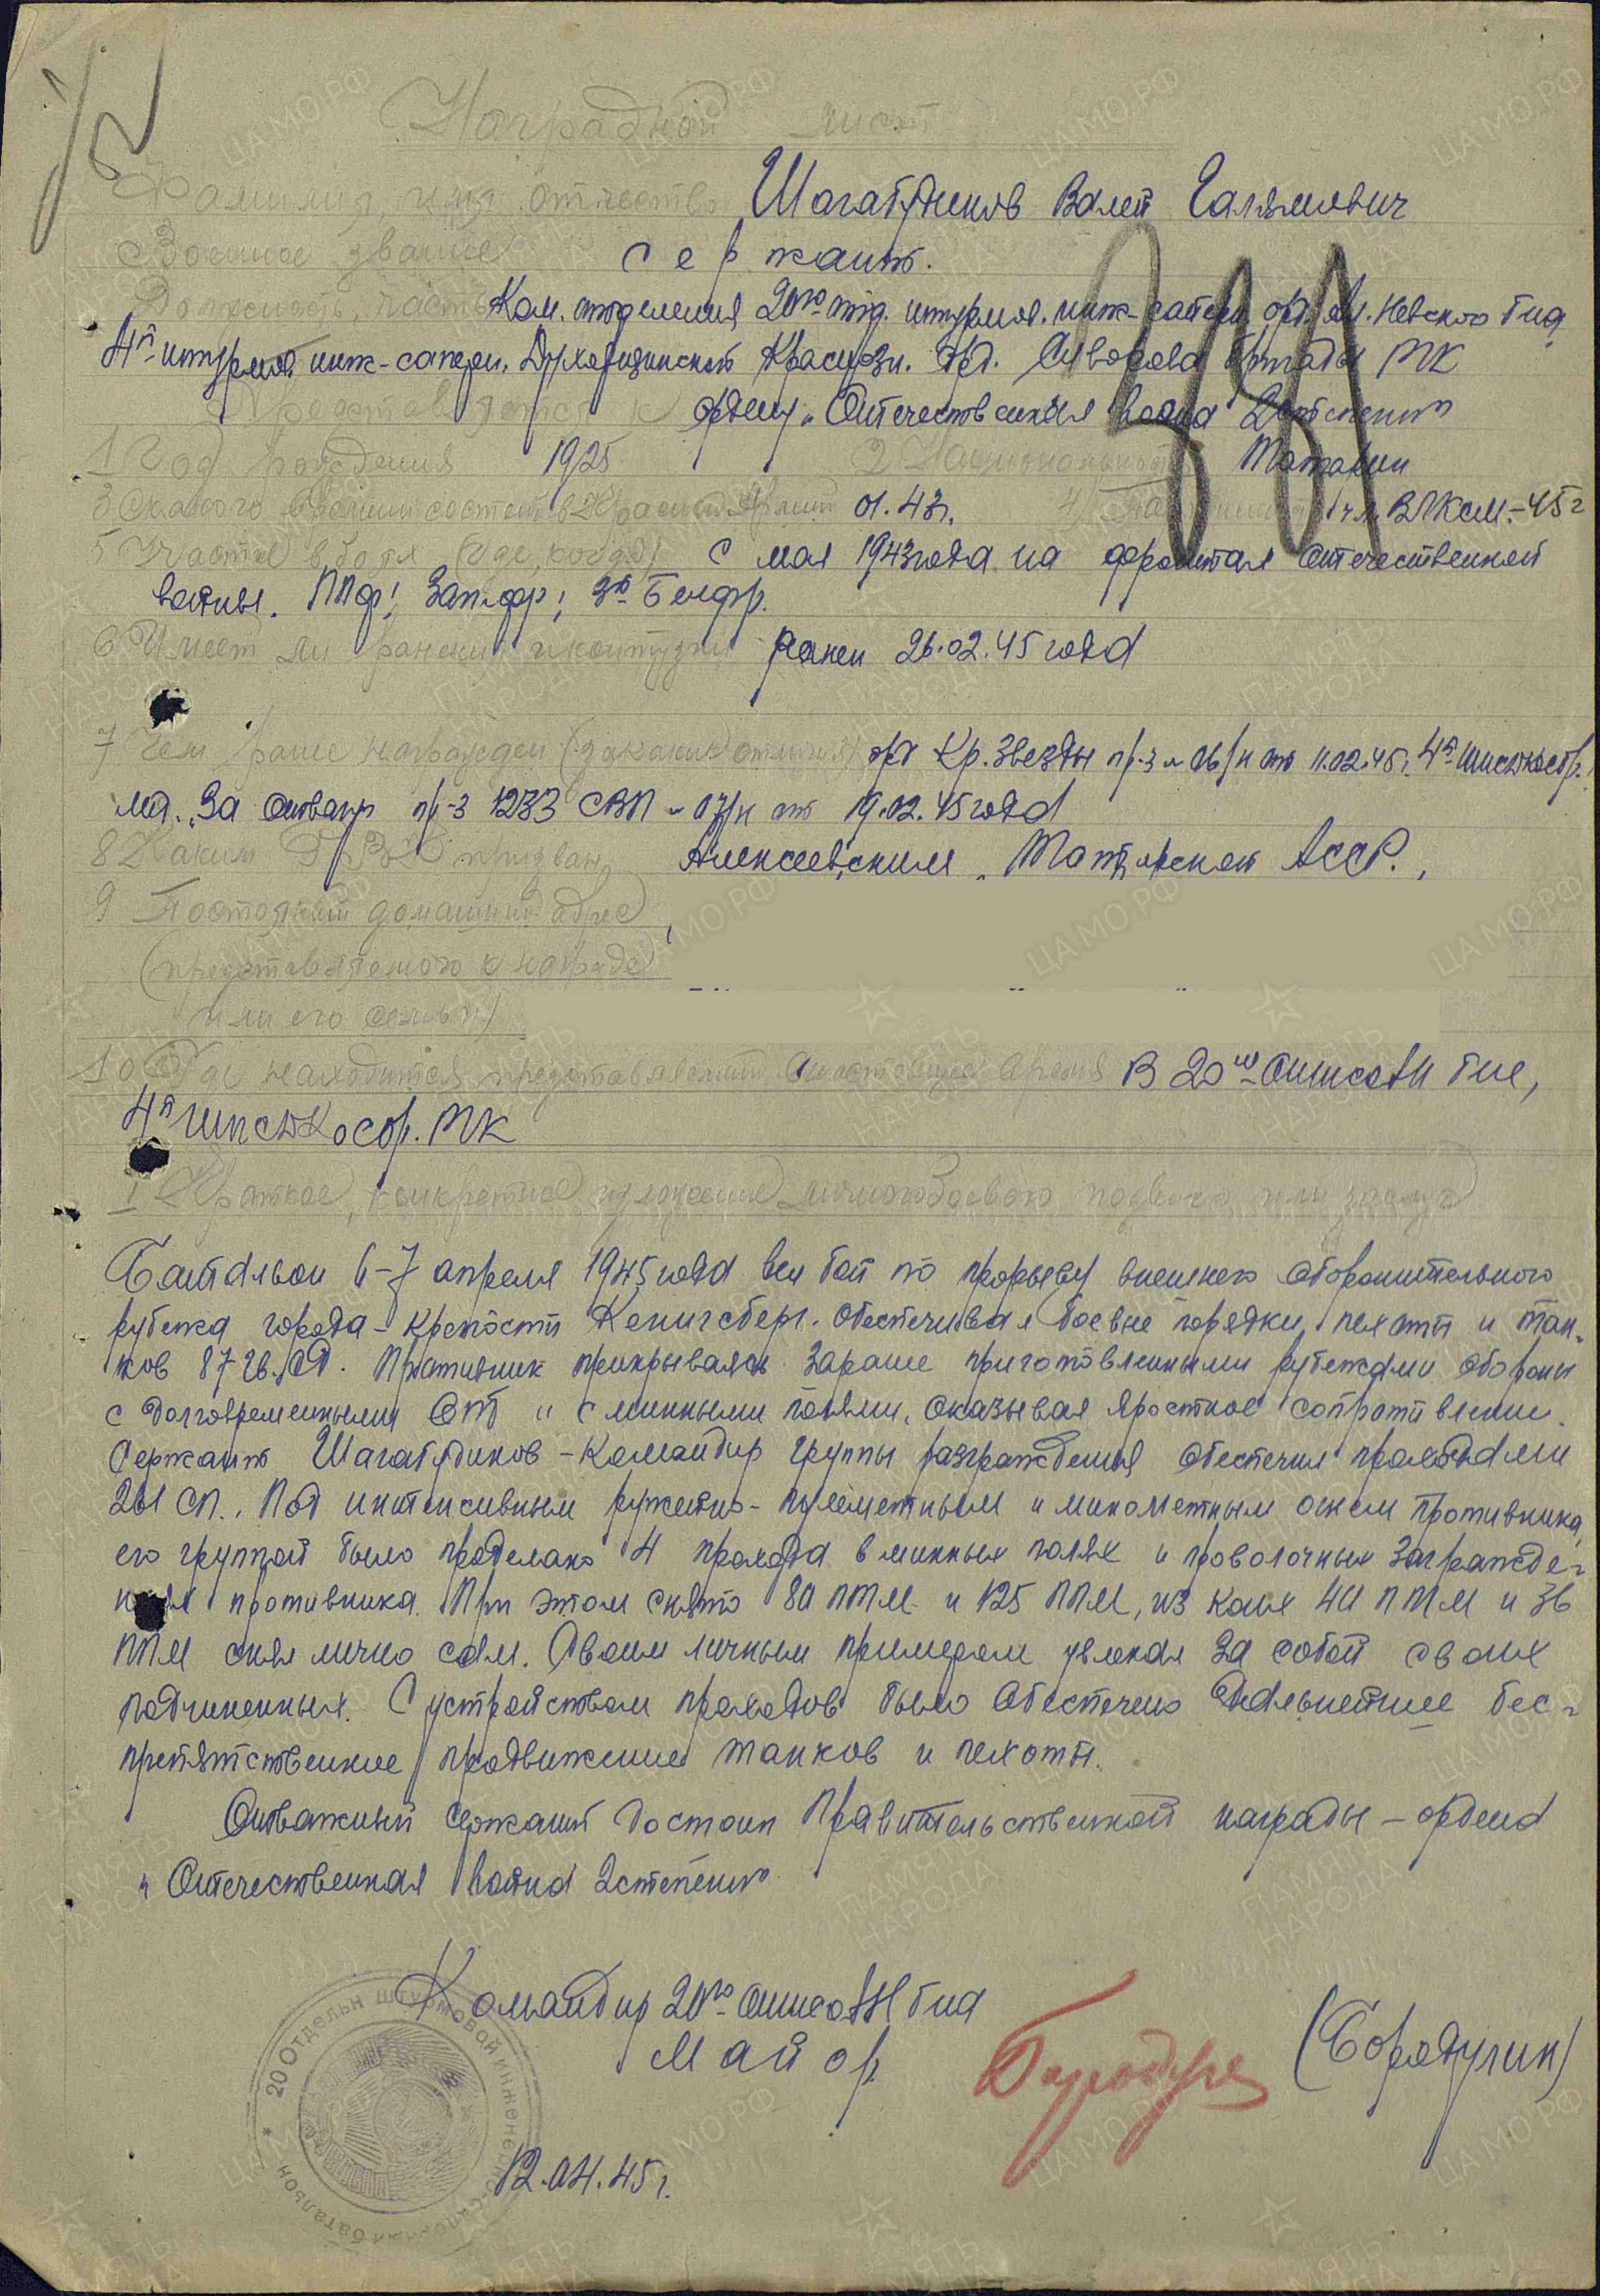 Наградной лист
Фамилия имя отчество Шагабудинов Валей Галямович
Военное звание сержант.
Должность, часть Ком. отделения 20го отд. штурмов. инж-саперн. орд. Ал. Невского б-на
4й штурмов. инж-саперн. Духовщинской Краснозн. орд. Суворова бригады РГК
Представляется к ордену "Отечественная война 2 степени"
1 Год рождения 1925 2 Национальность Татарин
3 С какого времени состоит в Красной Армии 01.43г. 4 Партийность чл. ВЛКСМ.-45г
5 Участие в боях (где, когда) с мая 1943 года на фронтах отечественной
войны. ЗапФр; 3й Белфр.
6 Имеет ли ранения и контузии Ранен 26.02.45 года
7 Чем ранее награжден (за какие отличия) орд Кр. Звезды пр-з №06/н от 11.02.45г. 4й шисдксбр.
мд. "За отвагу" пр-з 1283 САП №07/н от 19.02.45 года
8 Каким РВК призван Алексеевским, Татарской АССР.,
9 Постоянный домашний адрес
(представляемого к награде
или его семьи)
10 Где находится представляемый в настоящее время В 20м ошисаН б-не,
4й шисдксбр. РГК
I Краткое, конкретное изложение личного боевого подвига или заслуг
Батальон 6-7 апреля 1945 года вел бой по прорыву внешнего оборонительного
рубежа города-крепости Кенигсберг. Обеспечивая боевые порядки пехоты и тан-
ков 87 гв. СД. Противник прикрываясь заранее приготовленными рубежами обороны
с долговременными ОТ и с минными полями, оказывая яростное сопротивление.
Сержант Шагабудинов - Командир группы разграждения обеспечил проходами
261 СП. Под интенсивным ружейно-пулеметным и минометным огнем противника,
его группой было проделано 4 прохода в минных полях и проволочных загражде-
ниях противника. При этом снято 80 ПТМ и 125 ППМ, из коих 40 ПТМ и 36
ППМ снял лично сам. Своим личным примером увлекая за собой своих
подчиненных. С устройством проходов было обеспечено дальнейшее бес-
препятственное продвижение танков и пехоты.
Отважный сержант достоин Правительственной награды - ордена
"Отечественная война 2 степени"
Командир 20го ошисаН б-на
Майор
(Бородулин)
12.04.45г.
20 Отдельн штурмовой инженерно-саперный батальон